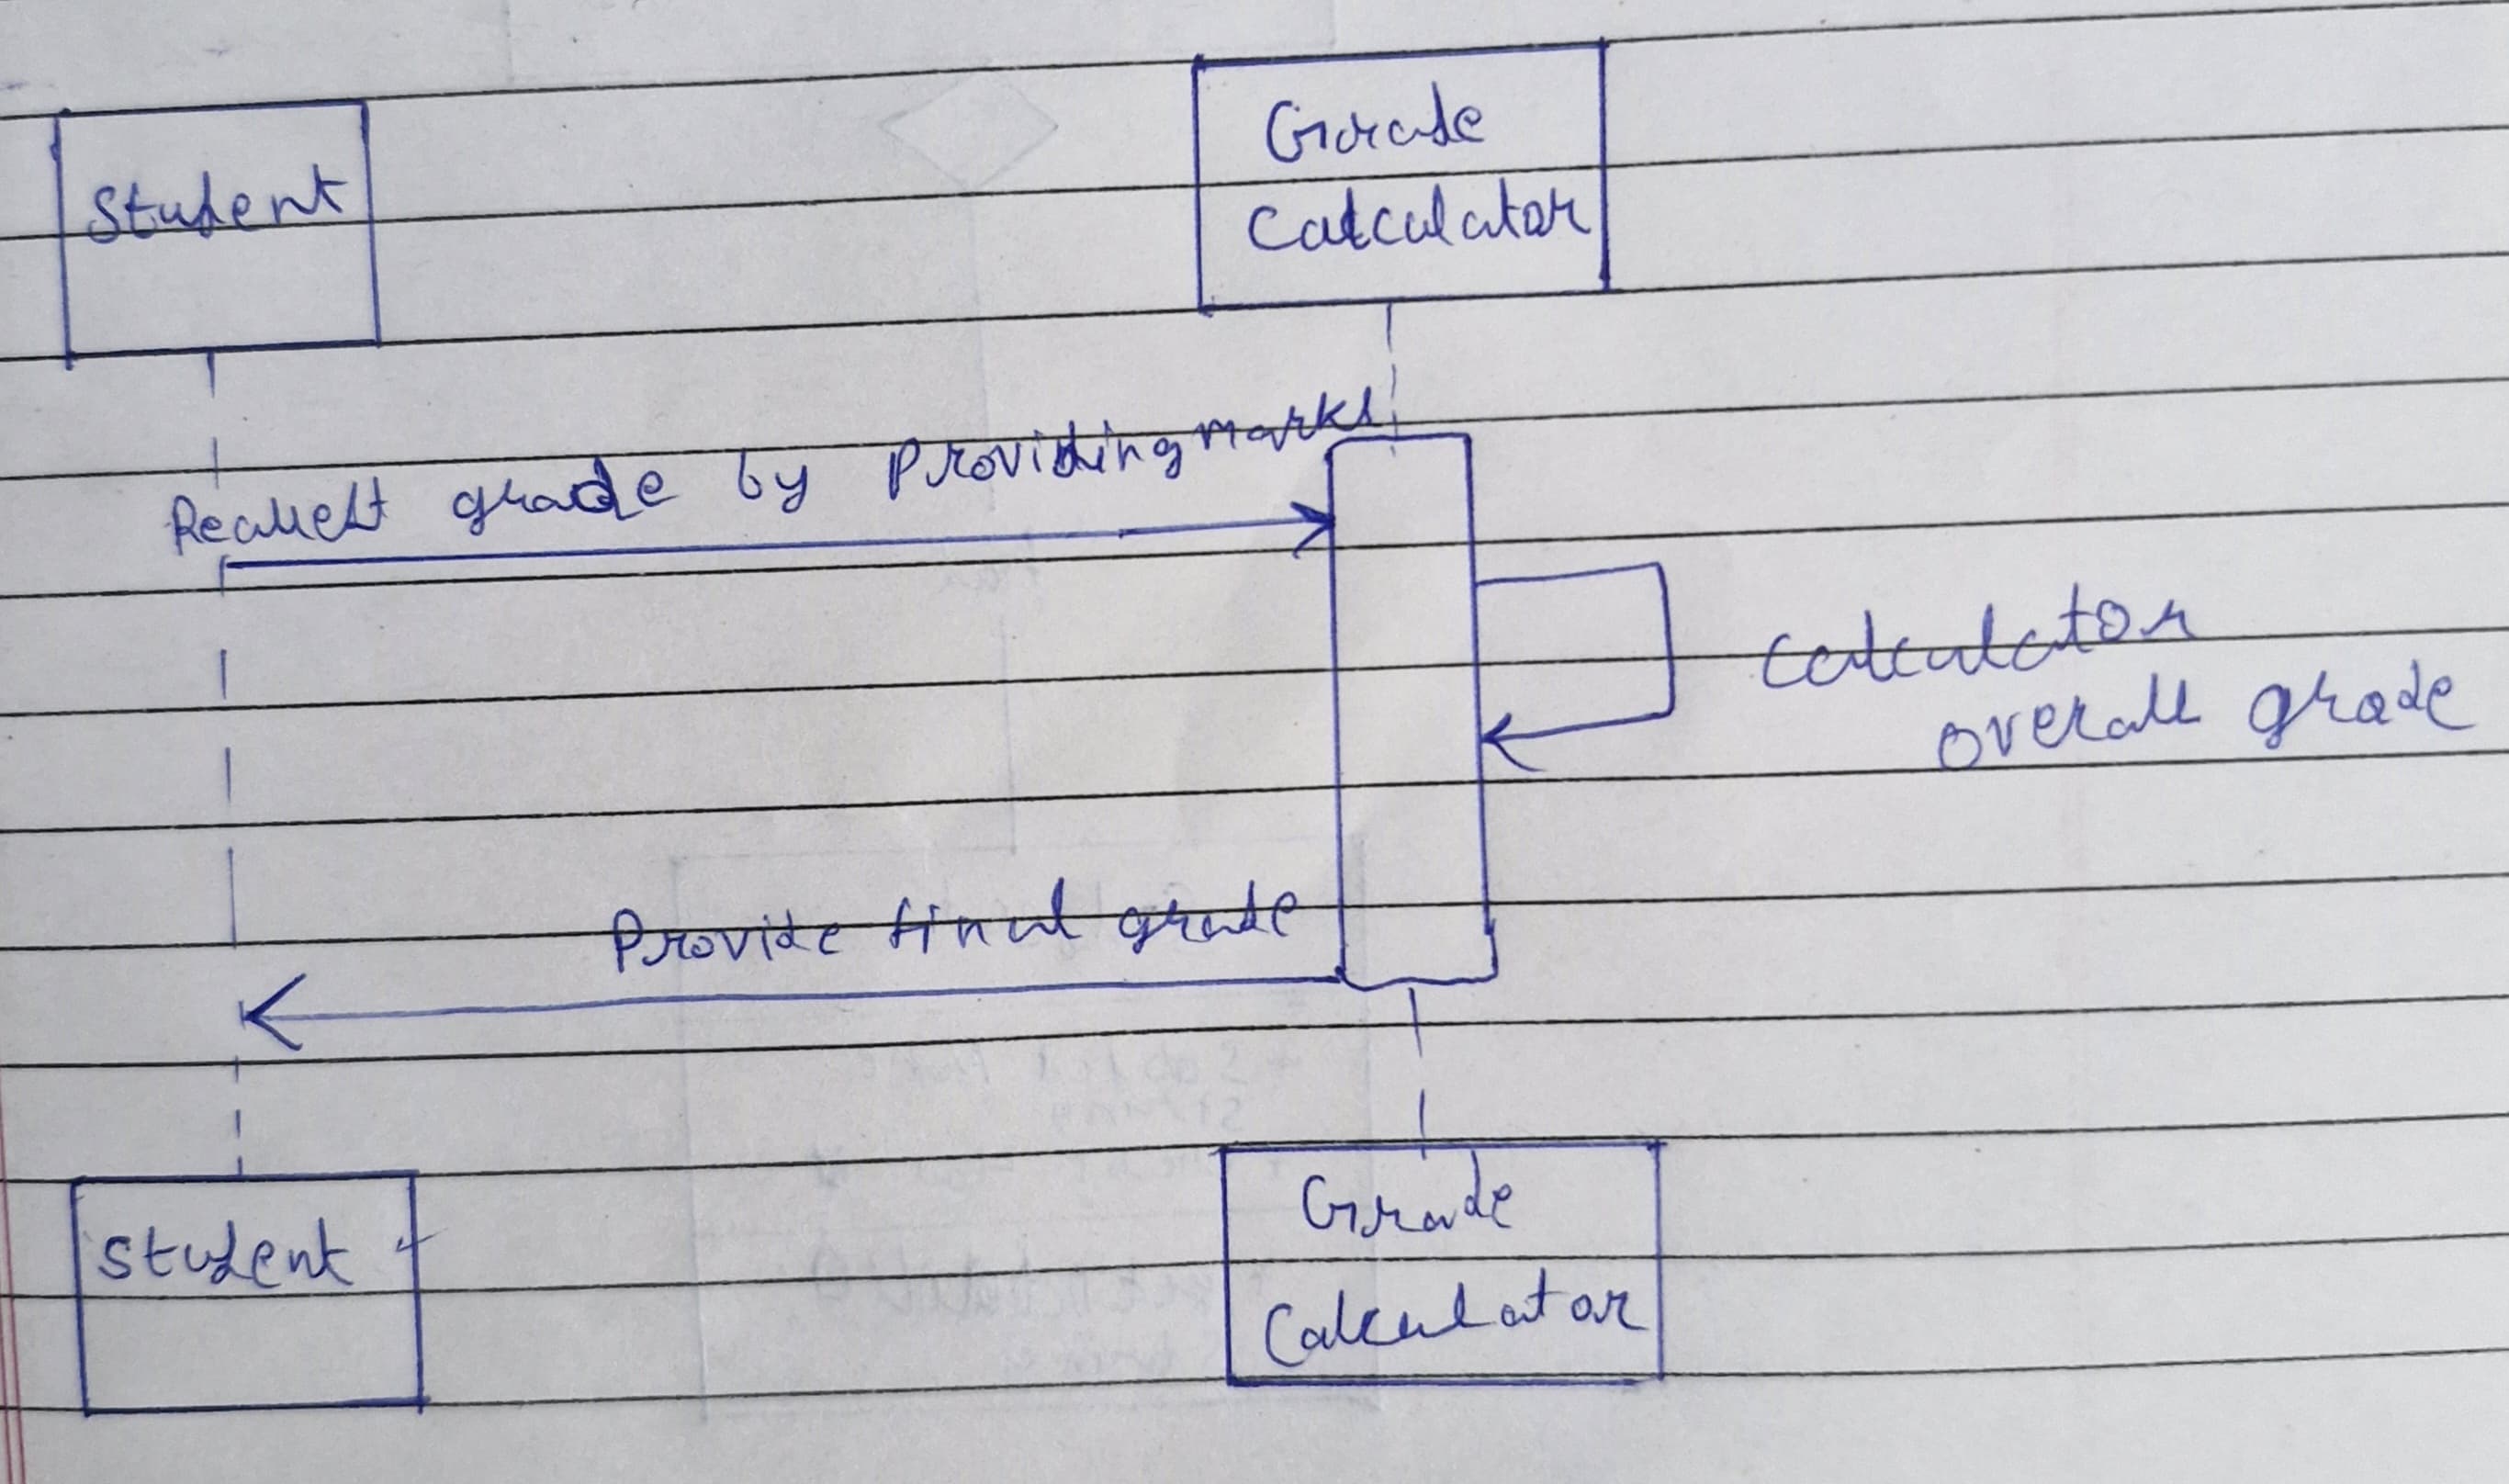 Student
Grade
Calculator
Request grade by Providing marks
Calculator
overall grade
Provide final grade
Student
Grade
Calculator